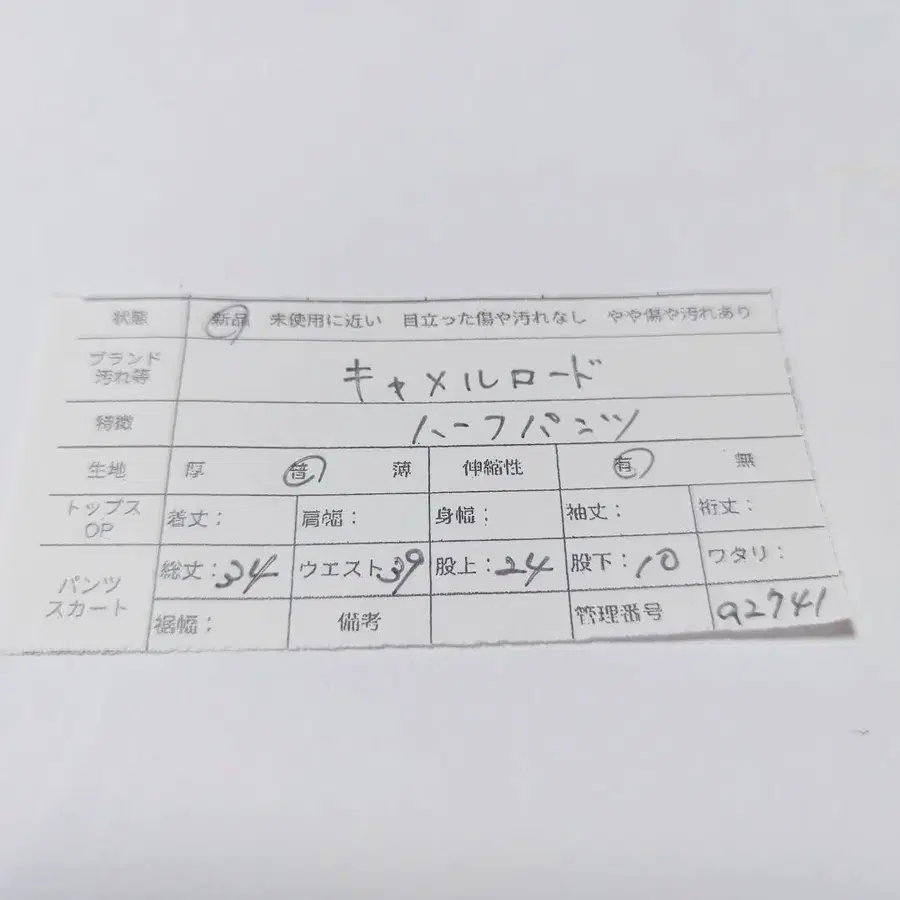 状態 新品 未使用に近い 目立った傷や汚れなし やや傷や汚れあり
ブランド
汚れ等 キャメルロード
特徴 ハーフパンツ
生地 厚 普 薄 伸縮性 有 無
トップス
OP 着丈: 肩幅: 身幅: 袖丈: 裄丈:
パンツ
スカート 総丈:34 ウエスト39 股上:24 股下:10 ワタリ:
裾幅: 備考 管理番号 a2741